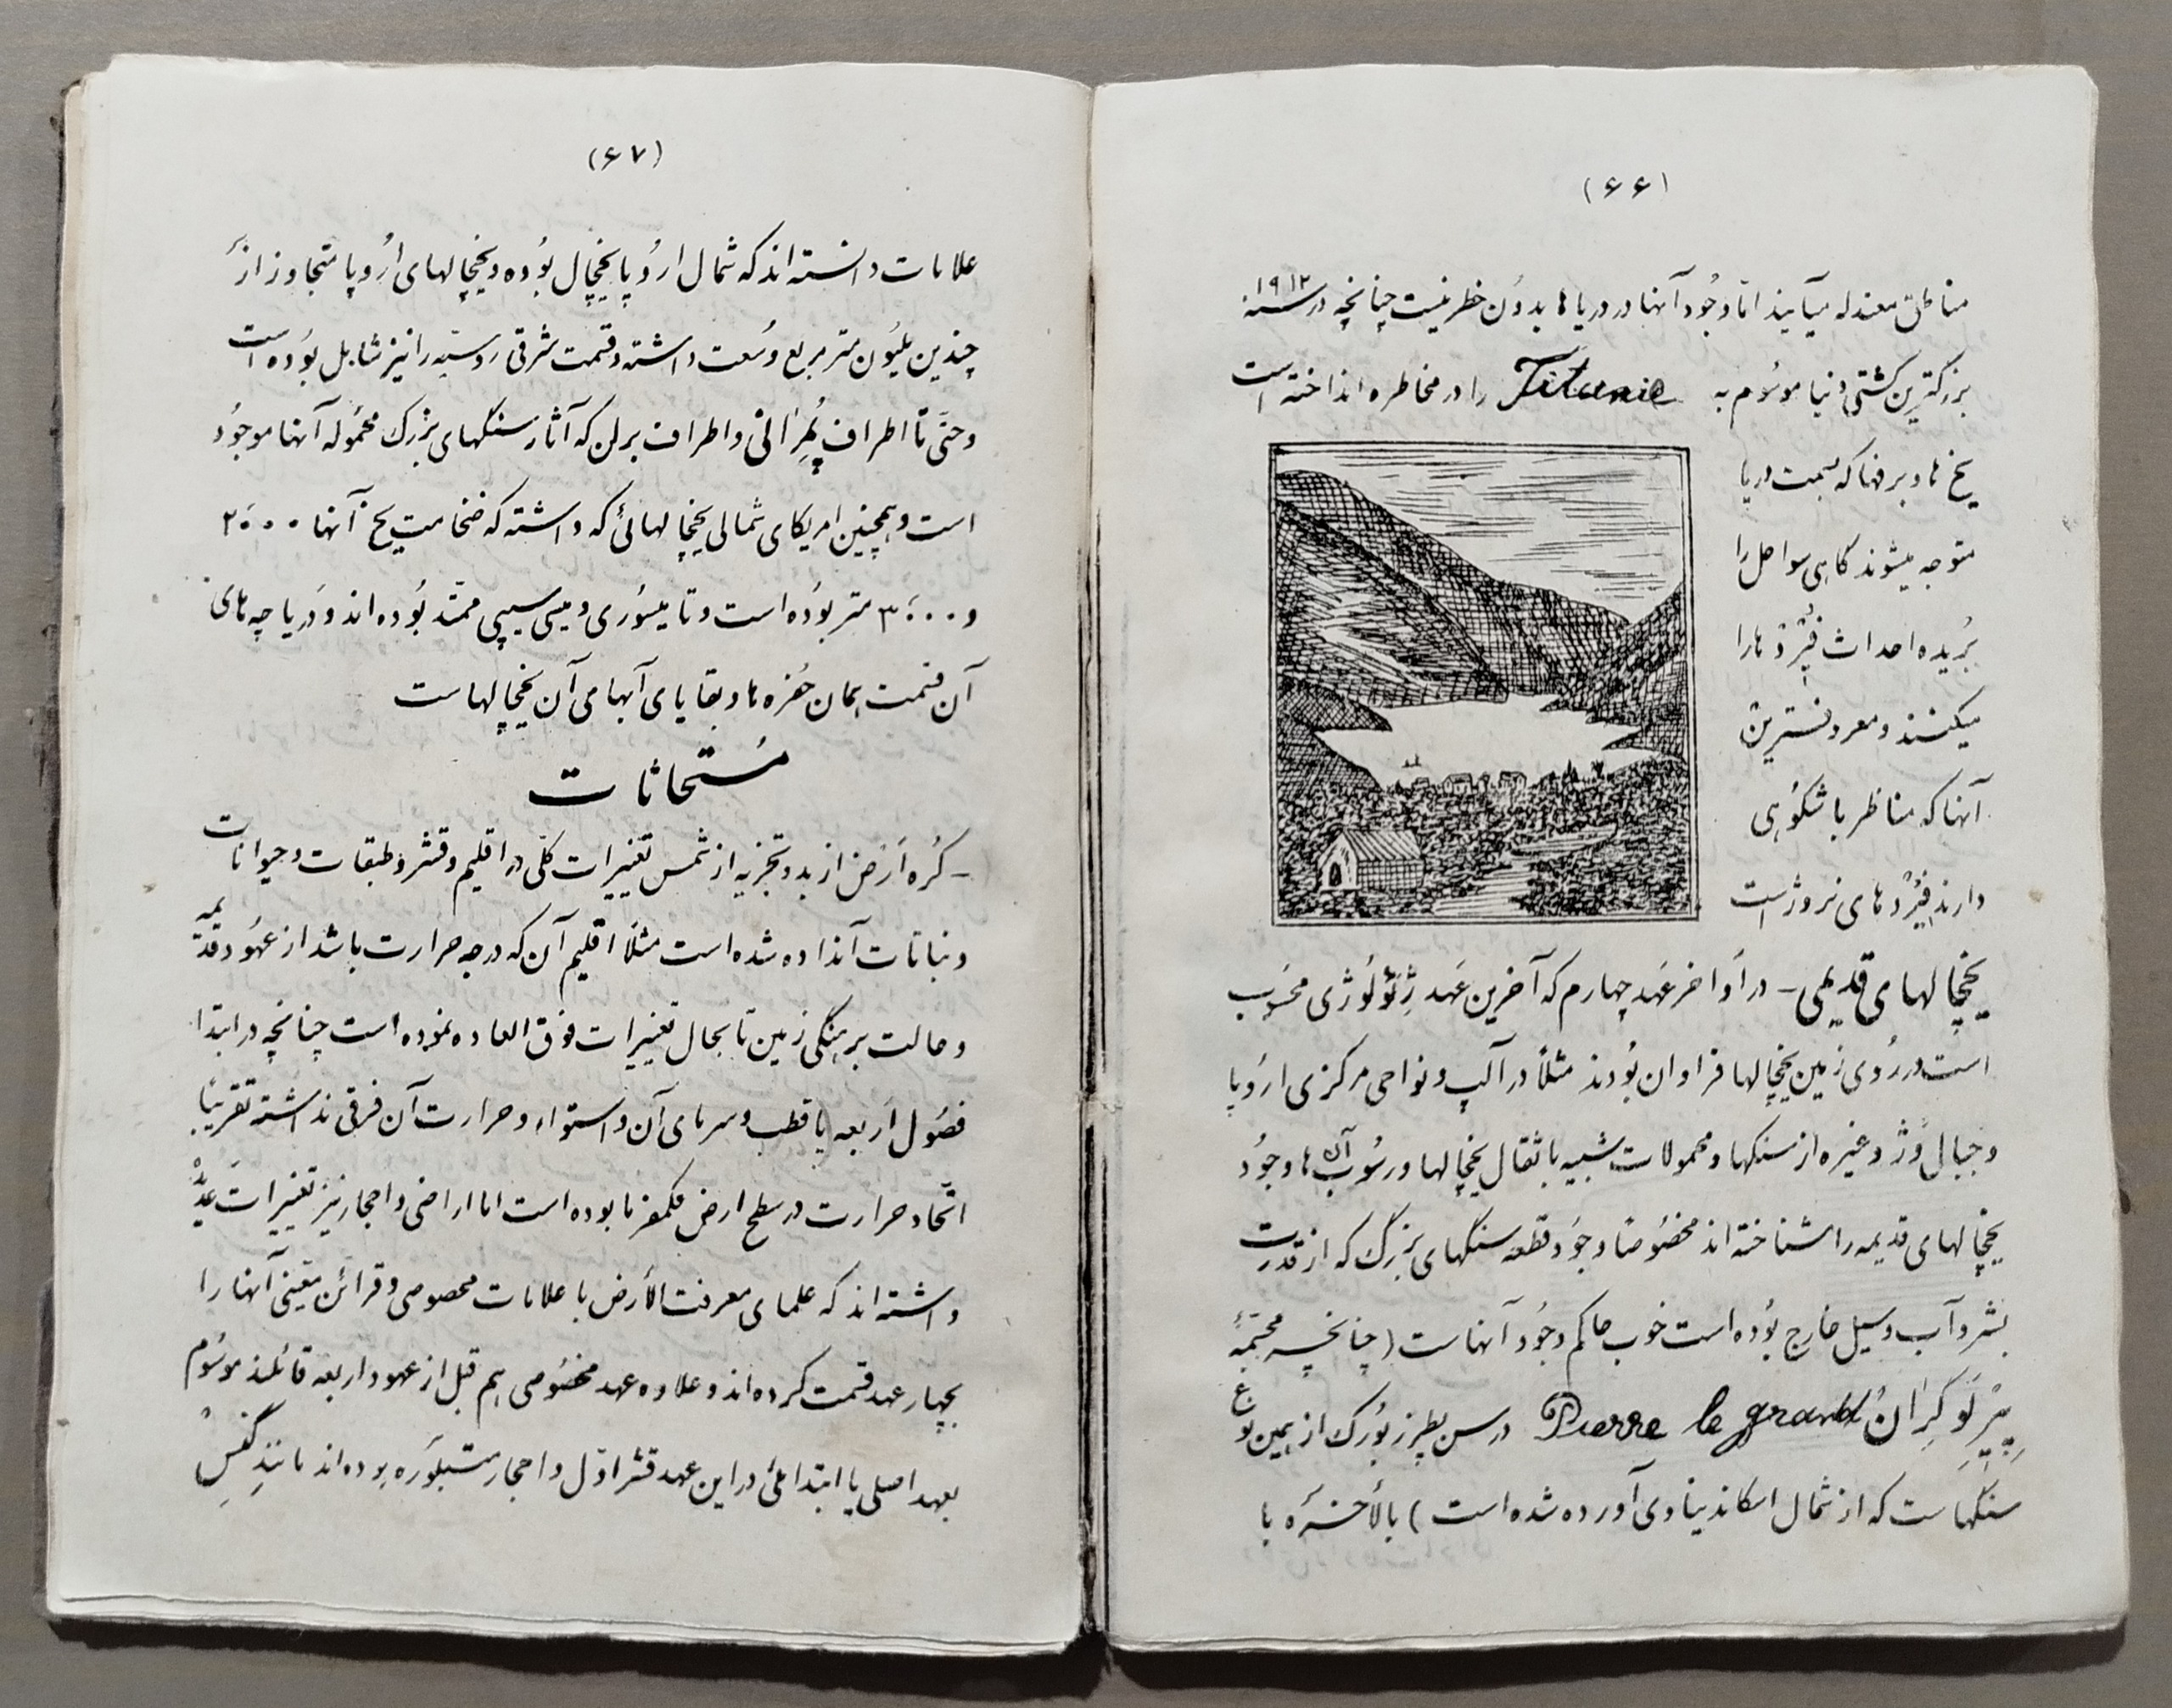 (۶۶)
مناطق معتدله میآیند امّا وجُود آنها در دریاها بدوُن خطر نیست چنانچه در سنهٔ ۱۹۱۲
بزرگترین کشتی دنیا موسُوم به Titanic را در مخاطره انداخته است
یخ ها و برفها که بسمت دریا
متوجه میشوند گاهی سواحل را
بُریده احداث فیُرد ها را
میکنند و معروفترین
آنها که مناظر باشکوُهی
دارند فیُرد های نروژ است
یخچالهای قدیمی - در أواخر عَهد چهارم که آخرین عَهد ژئولُوژی محسُوب
است در رُوی زمین یخچالها فراوان بُودند مثلاً در آلپ و نواحی مرکزی ارُوپا
و جبال وُژ و غیره از سنگها و محمولات شبیه باثقال یخچالها و رسُوب آن ها وجُود
یخچالهای قدیمه را شناخته اند مخصُوصًا وجُود قطعه سنگهای بزرگ که از قدرت
بشر و آب و سیل خارج بُوده است خوب حاکم وجُود آنهاست (چنانچه مجسّمهٔ
پییر لوُ گران Pierre le grand در سن پطرزبُورگ از همین نوُع
سنگهاست که از شمال اسکاندیناوی آورده شده است) بالأخره با
(۶۷)
علامات دانسته اند که شمال ارُوپا یخچال بُوده و یخچالهای ارُوپا متجاوز از
چندین ملیُون متر مربع وسُعت داشته و قسمت شرقی روسیّه را نیز شامل بوُده است
و حتّی تا اطراف و اطراف برلن که آثار سنگهای بزرگ محمُوله آنها موجُود
است و همچنین امریکای شمالی یخچالهائی که داشته که ضخامت یخ آنها ۲۰۰۰
و ۳۰۰۰ متر بوُده است و تا میسُوری و میسی سیپی ممتّد بُوده اند و دریاچه های
آن قسمت همان حفره ها و بقایای آبهامی آن یخچالهاست
مُستحاثات
- کُره أرض از بدو تجزیه از شمس تغییرات کلّی در اقلیم و قشر و طبقات و حیوانات
و نباتات آنداده شده است مثلاً اقلیم آن که درجه حرارت باشد از عهُود قدیمه
و حالت برهنگی زمین تا بحال تغییرات فوق العاده نموده است چنانچه در ابتدا
فصُول أربعه یا قطب و سرمای آن و استواء و حرارت آن فرقی نداشته تقریبًا
اتّحاد حرارت در سطح ارض حکمفرما بوده است اما اراضی و احجار نیز تغییرات عدیده
داشته اند که علمای معرفت الأرض با علامات مخصوصی و قرائن متقینی آنها را
بچهار عهد قسمت کرده اند و علاوه عهد مخصُوصی هم قبل از عهود اربعه قائلند موسُوم
بعهد اصلی یا ابتدائی در این عهد قشر اوّل و احجار متبلوّره بوده اند مانند گنِس